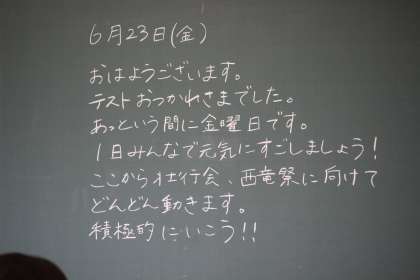 6月23日(金)
おはようございます。
テストおつかれさまでした。
あっという間に金曜日です。
1日みんなで元気にすごしましょう!
ここから壮行会、西竜祭に向けて
どんどん動きます。
積極的にいこう!!